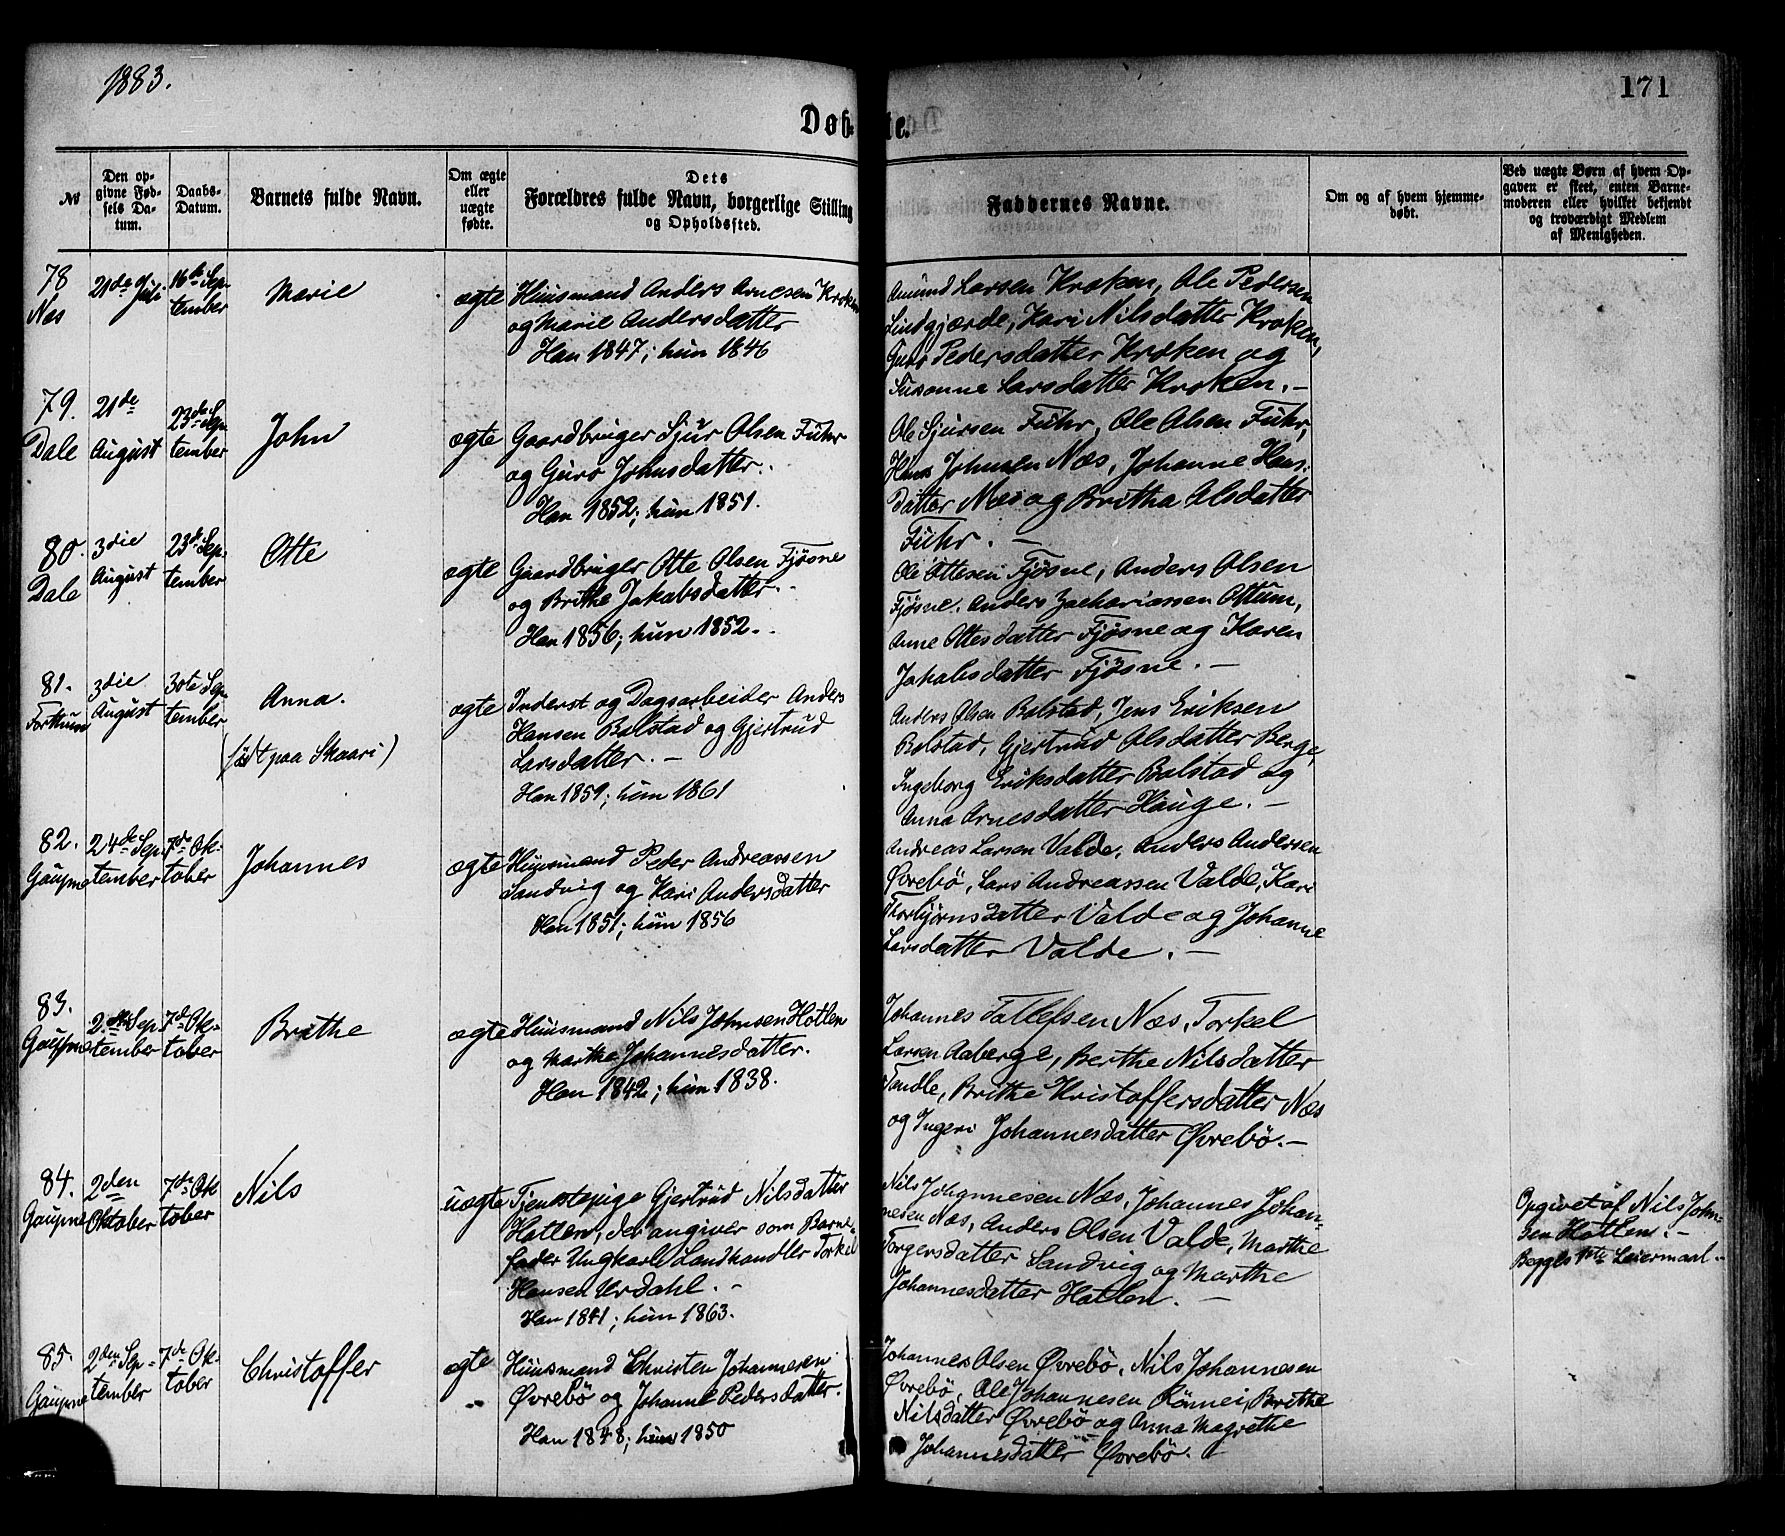 1883.
171
Døb-
te.
№
Den op-
givne Fød-
sels Da-
tum.
Daabs-
Datum.
Barnets fulde Navn.
Om ægte
eller
uægte
fødte.
Dets
Forældres fulde Navn, borgerlige Stilling
og Opholdssted.
Faddernes Navne.
Om og af hvem hjemme-
døbt.
Ved uægte Børn af hvem Op-
gaven er skeet, enten Barne-
moderen eller hvilket bekjendt
og troværdigt Medlem
af Menigheden.
78
Næs
21de Juli
16de Sep-
tember
Marie
ægte
Huusmand Anders Arnesen Kroken
og Marie Andersdatter
Han 1847; hun 1846
Amund Larsen Kroken, Ole Pedersen
Lindgjærde, Kari Nilsdatter Kroken,
Guro Pedersdatter Kroken og
Susanne Larsdatter Kroken. –
79.
Dale
21de
August
23de Sep-
tember
John
ægte
Gaardbruger Sjur Olsen Fuhr
og Guro Johnsdatter.
Han 1852; hun 1851.
Ole Sjursen Fuhr, Ole Olsen Fuhr,
Hans Johnsen Næs, Johanne Hans-
datter Næs og Britha Olsdatter
Fuhr. –
80.
Dale
3die
August
23de Sep-
tember
Otte
ægte
Gaardbruger Otte Olsen Fjøsne
og Brithe Jakobsdatter.
Han 1856; hun 1852.
Ole Ottesen Fjøsne, Anders Olsen
Fjøsne, Anders Zachariassen Ottum,
Anne Ottesdatter Fjøsne og Karen
Jakobsdatter Fjøsne. –
81.
Forthun
3die
August
30te Sep-
tember
Anna.
(født paa Skaari)
ægte
Inderst og Dagsarbeider Anders
Hansen Bolstad og Gjertrud
Larsdatter. –
Han 1859; hun 1861
Anders Olsen Bolstad, Jens Eriksen
Bolstad, Gjertrud Olsdatter Berge,
Ingeborg Eriksdatter Bolstad og
Anna Arnesdatter Hauge. –
82.
Gaupne
24de Sep-
tember
7de Ok-
tober
Johannes
ægte
Huusmand Peder Andreassen
Sandvig og Kari Andersdatter
Han 1851; hun 1856
Andreas Larsen Valde, Anders Andersen
Øvrebö, Lars Andreassen Valde, Kari
Thorbjørnsdatter Valde og Johanne
Larsdatter Valde. –
83.
Gaupne
2den Sep-
tember
7de Ok-
tober
Brithe
ægte
Huusmand Nils Johnsen Hotlen
og Marthe Johannesdatter.
Han 1842; hun 1838.
Johannes Tollefsen Næs, Torkel
Larsen Aaberge, Berthe Nilsdatter
Tandle, Brithe Kristoffersdatter Næs
og Ingeri Johannesdatter Øvrebö. –
84.
Gaupne
2den
Oktober
7de Ok-
tober
Nils
uægte
Tjenstepige Gjertrud Nilsdatter
Hotlen, der angiver som Barne-
fader Ungkarl Landhandler Torkel
Hansen Urdahl. –
Han 1841; hun 1863.
Nils Johannesen Næs, Johannes Johan-
nesen Næs, Anders Olsen Valde, Marthe
Torgersdatter Sandvig og Marthe
Johannesdatter Hotlen. –
Opgivet af Nils John-
sen Hotlen. –
Begges 1ste Leiermaal. –
85.
Gaupne
2den Sep-
tember
7de Ok-
tober
Christoffer
ægte
Huusmand Christen Johannesen
Øvrebö og Johanne Pedersdatter.
Han 1848; hun 1850
Johannes Olsen Øvrebö, Nils Johannesen
Øvrebö, Ole Johannesen Rönnei, Brithe
Nilsdatter Øvrebö og Anna Magrethe
Johannesdatter Øvrebö.